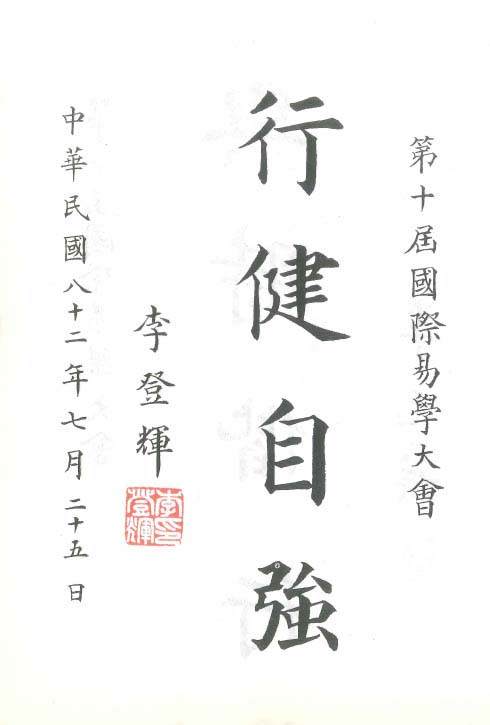 第十屆國際易學大會
行健自強
李登輝
李登輝印
中華民國八十二年七月二十五日